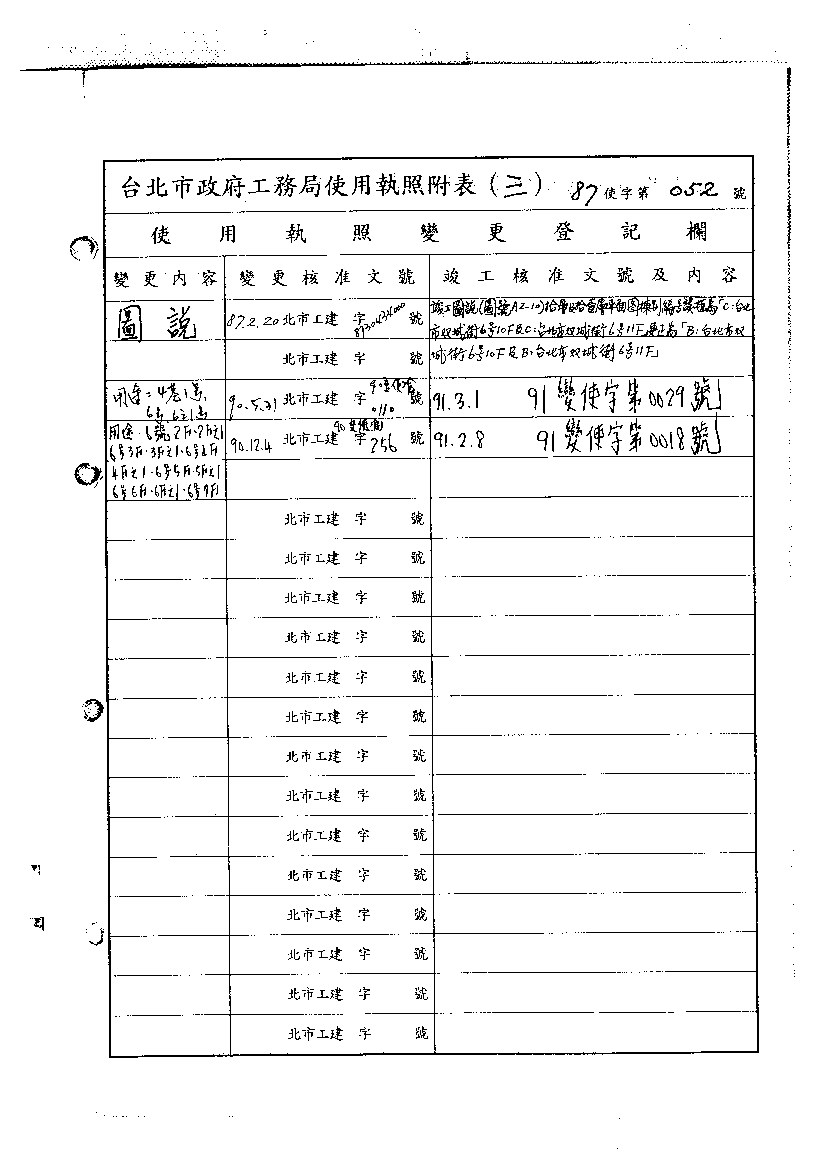 台北市政府工務局使用執照附表(三) 87使字第 052 號
使用執照變更登記欄
變更內容 變更核准文號 竣工核准文號及內容
圖說 87.2.20 北市工建 字 號 竣工圖說(圖號A2-10)拾層及拾壹層平面圖棟別編号誤植為「C:台北
北市工建 字 號 市双城街6号10F及C:台北市双城街6号11F」更正為「B:台北市双
城街6号10F及B:台北市双城街6号11F」
用途:4巷1号, 90.5.31 北市工建 字 0110 號 91.3.1 91變使字第0029號」
6号, 6之1号
用途:6號2F.2F之1 90.12.4 北市工建 字 256 號 91.2.8 91變使字第0018號」
6号3F.3F之1.6号4F
4F之1.6号5F.5F之1
6号6F.6F之1.6号7F
北市工建 字 號
北市工建 字 號
北市工建 字 號
北市工建 字 號
北市工建 字 號
北市工建 字 號
北市工建 字 號
北市工建 字 號
北市工建 字 號
北市工建 字 號
北市工建 字 號
北市工建 字 號
北市工建 字 號
北市工建 字 號